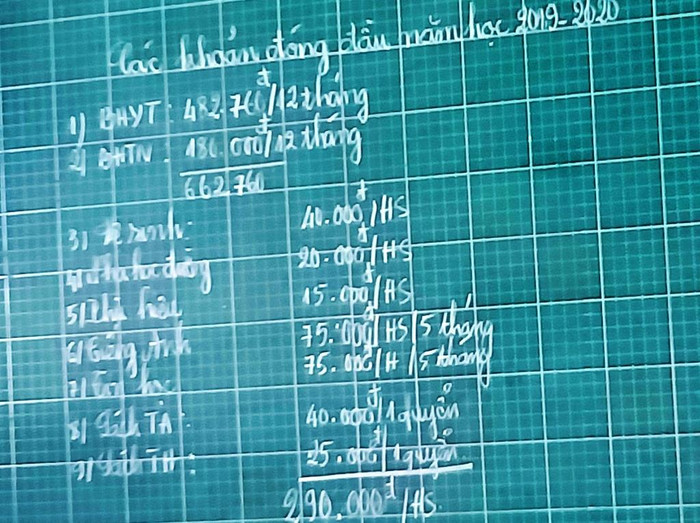 Các khoản đóng đầu năm học 2019-2020
1) BHYT: 482.760đ/12 tháng
2) BHTN: 180.000đ/12 tháng
662.760
3) Vệ sinh: 40.000đ/HS
4) 20.000đ/HS
5) 15.000đ/HS
6) Tiếng Anh 75.000đ/HS/5 tháng
7) Tin học 75.000đ/H/5 tháng
8) Sách TA: 40.000đ/1 quyển
9) Sách TH: 25.000đ/1 quyển
290.000đ/HS